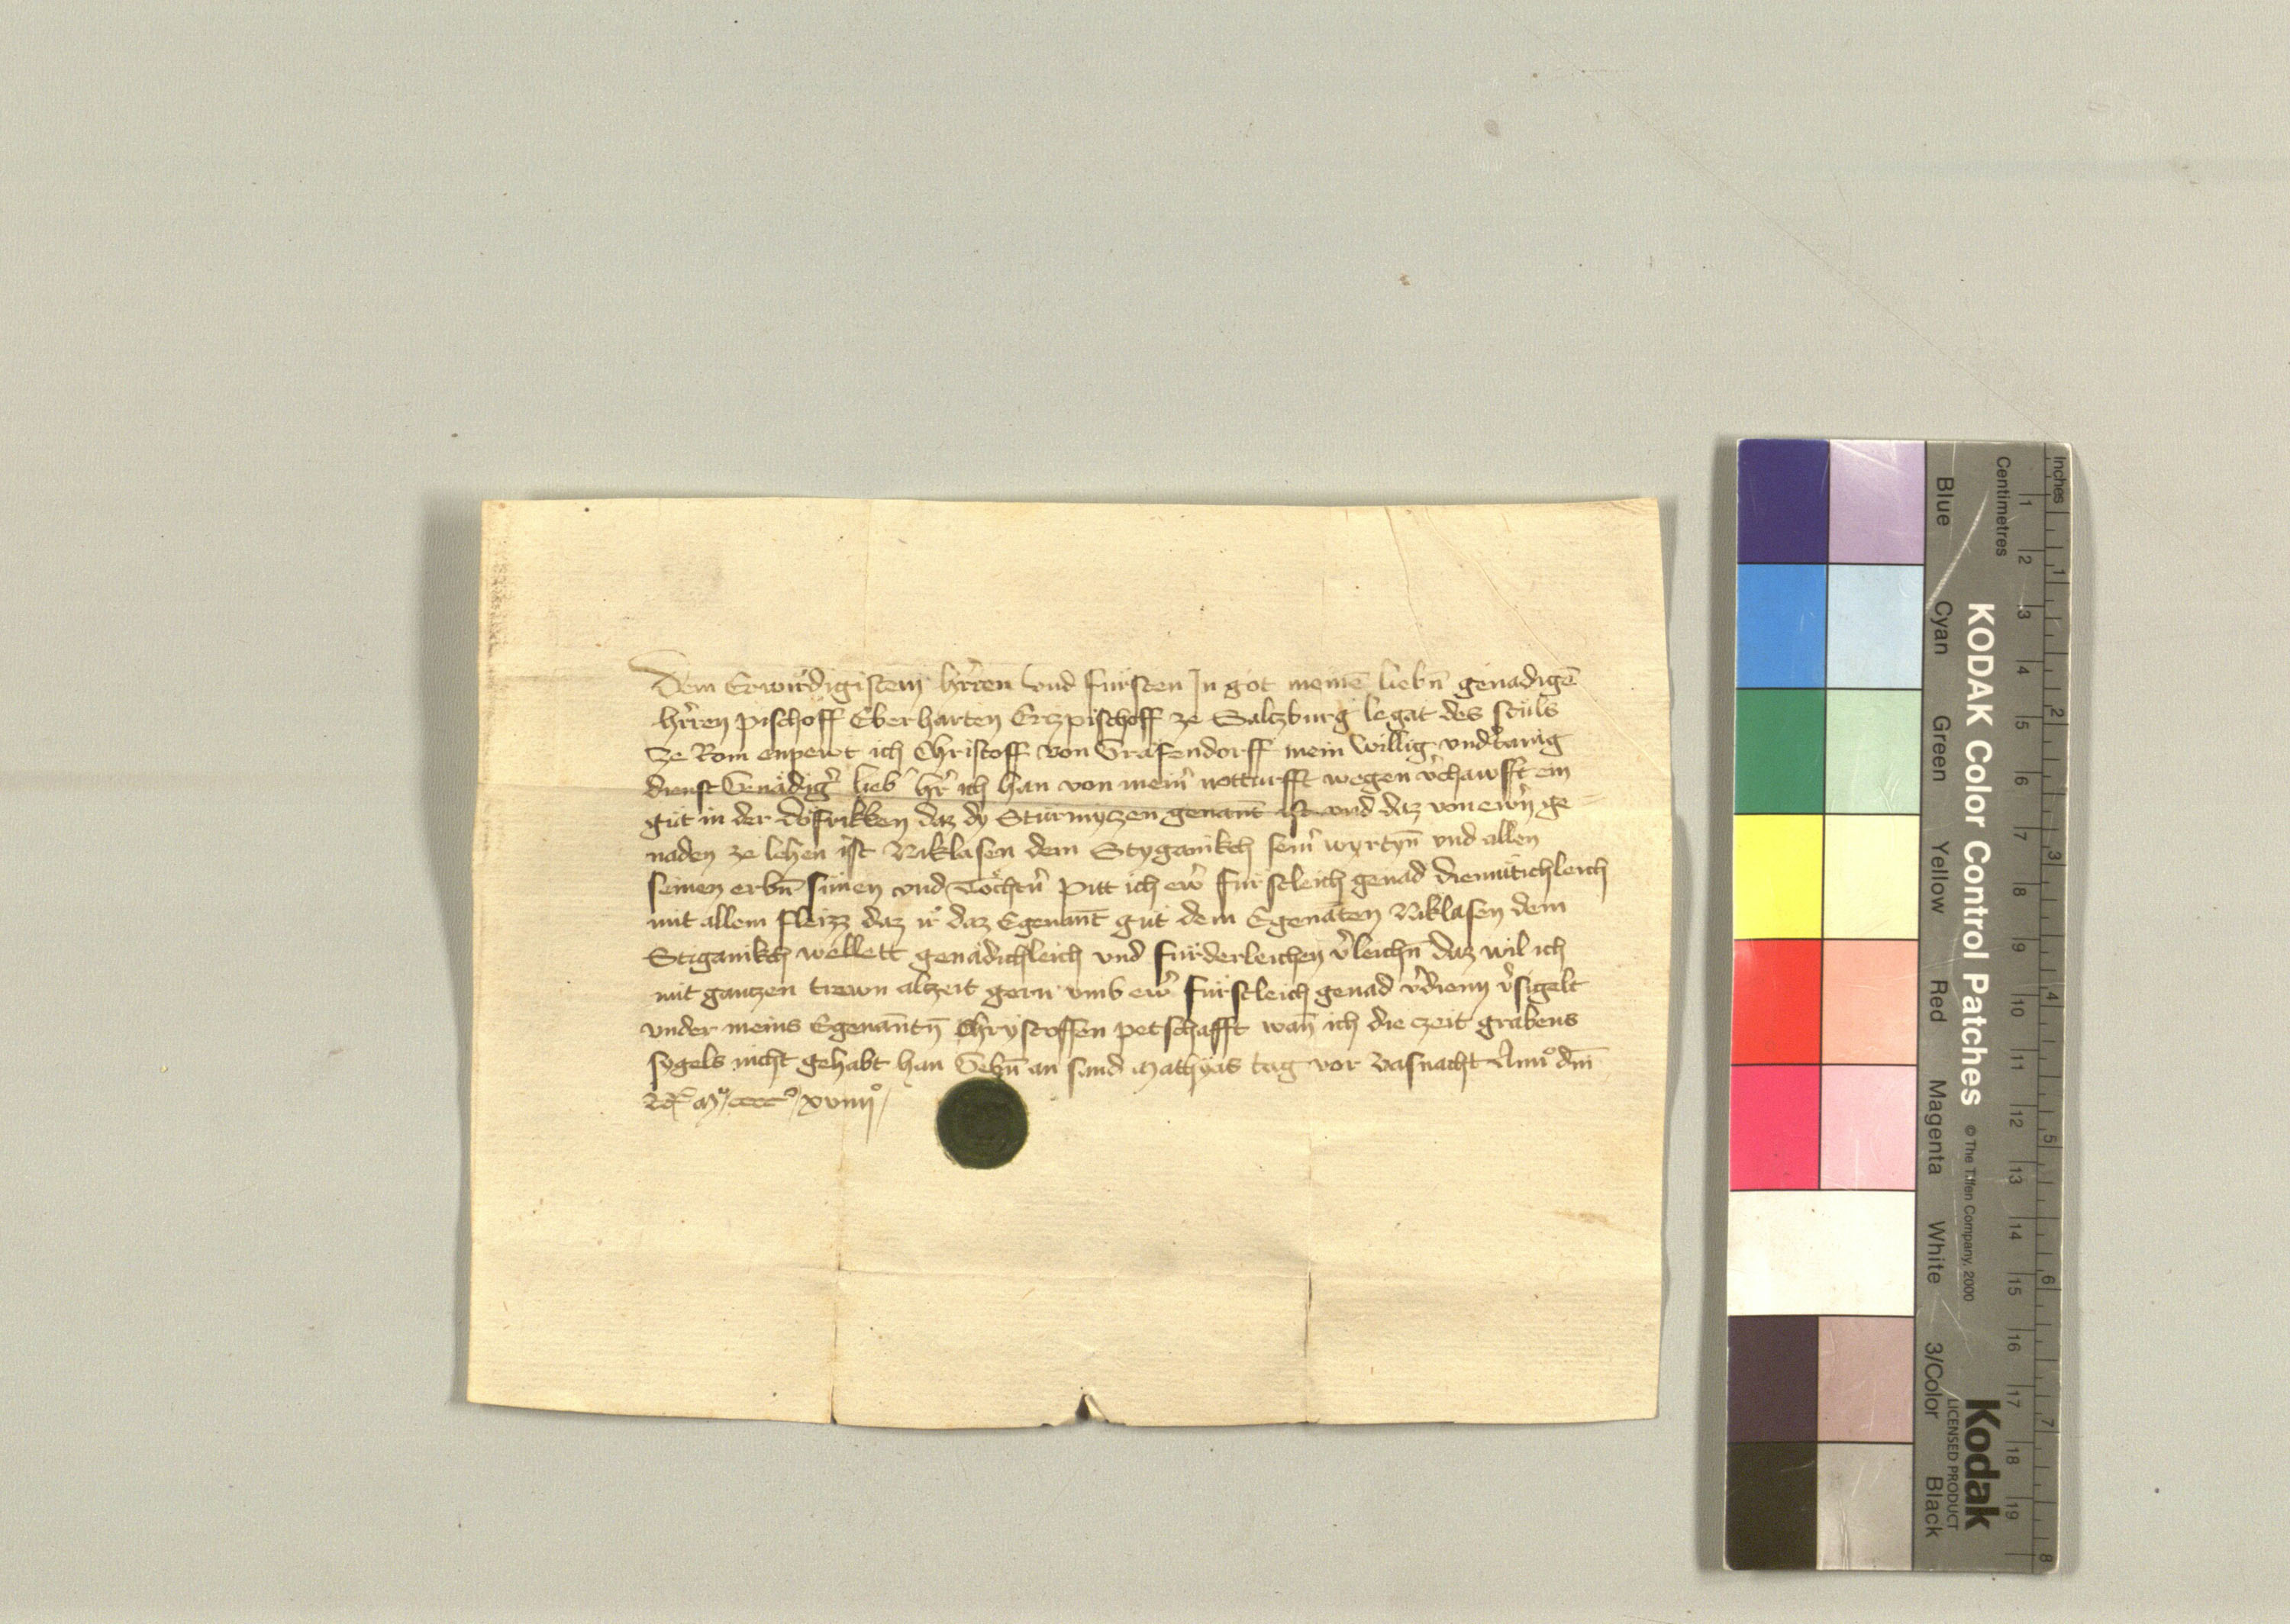 Dem Erwirdigisten hr̄ren vnd fürsten Jn got meinē liebn̄ genadigē
hr̄ren pischoff Eberharten Erczpischoff ze Salczburg legat des stuls
ze Rom enpewt ich Christoff von Grafendorff mein willig vndtanig
dienst Genädigr̄ lieb' hr̄ ich han von mein̄ notturfft wegen vchawfft ein
gut in der dofrikken daz dy Sturmyczen genant ist vnd daz von ewrn̄ ge=
naden ze lehen ist Niklasen dem Styganikch sein̄ wyrtyn̄ vnd allen
seinen erbn̄ sünen vnd Töchtn̄ pitt ich ewr̄ fürstleich genad diemütichleich
mit allem fleizz daz ir daz Egenant̄ gut dem Egenāten Niklasen dem
Stiganikch wellett genädichleich vnd fürderleichen vleichn̄ daz wil ich
mit ganczen trewn alzeit gern vmb ewr̄ fürstleich genad vdienn vsigelt
vnder meins Egenāntn̄ Chrystoffen petschafft wan̄ ich die czeit grabens
sygels nicht gehabt han Gebn̄ an sand Mathyas tag vor vasnacht Anno dm̄
Mo cccco xviiijo
Inches
Centimetres
1 2 3 4 5 6 7 8
1 2 3 4 5 6 7 8 9 10 11 12 13 14 15 16 17 18 19
KODAK Color Control Patches
© The Tiffen Company, 2000
Kodak
LICENSED PRODUCT
Blue Cyan Green Yellow Red Magenta White 3/Color Black